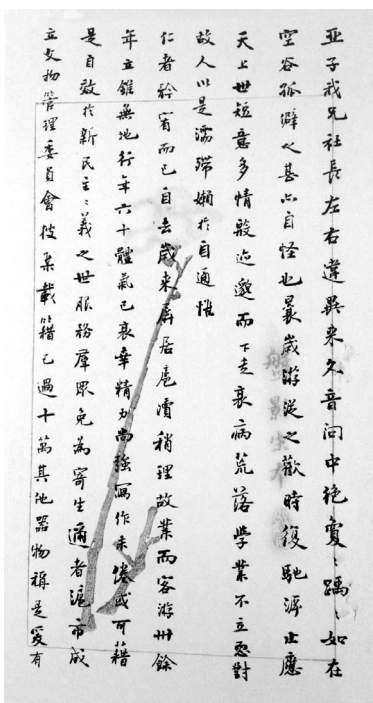 亚子我兄社長左右違異來久音问中絶煢〻踽〻如在
空谷孤癖之甚亦自怪也曩歲游從之歡時復馳溯止應
天上世短意多情殷迹邈而下走衰病荒落學業不立恧對
故人以是濡滞嬾於自通惟
仁者矜宥而已自去歲來屏居扈瀆稍理故業而客游卅餘
年立錐無地行年六十體氣已衰幸精力尚強寫作未倦或可藉
是自效於新民主〻義之世服務羣眾免為寄生邇者滬市成
立文物管理委員會伎集載籍已過十萬其他器物稱是爰有